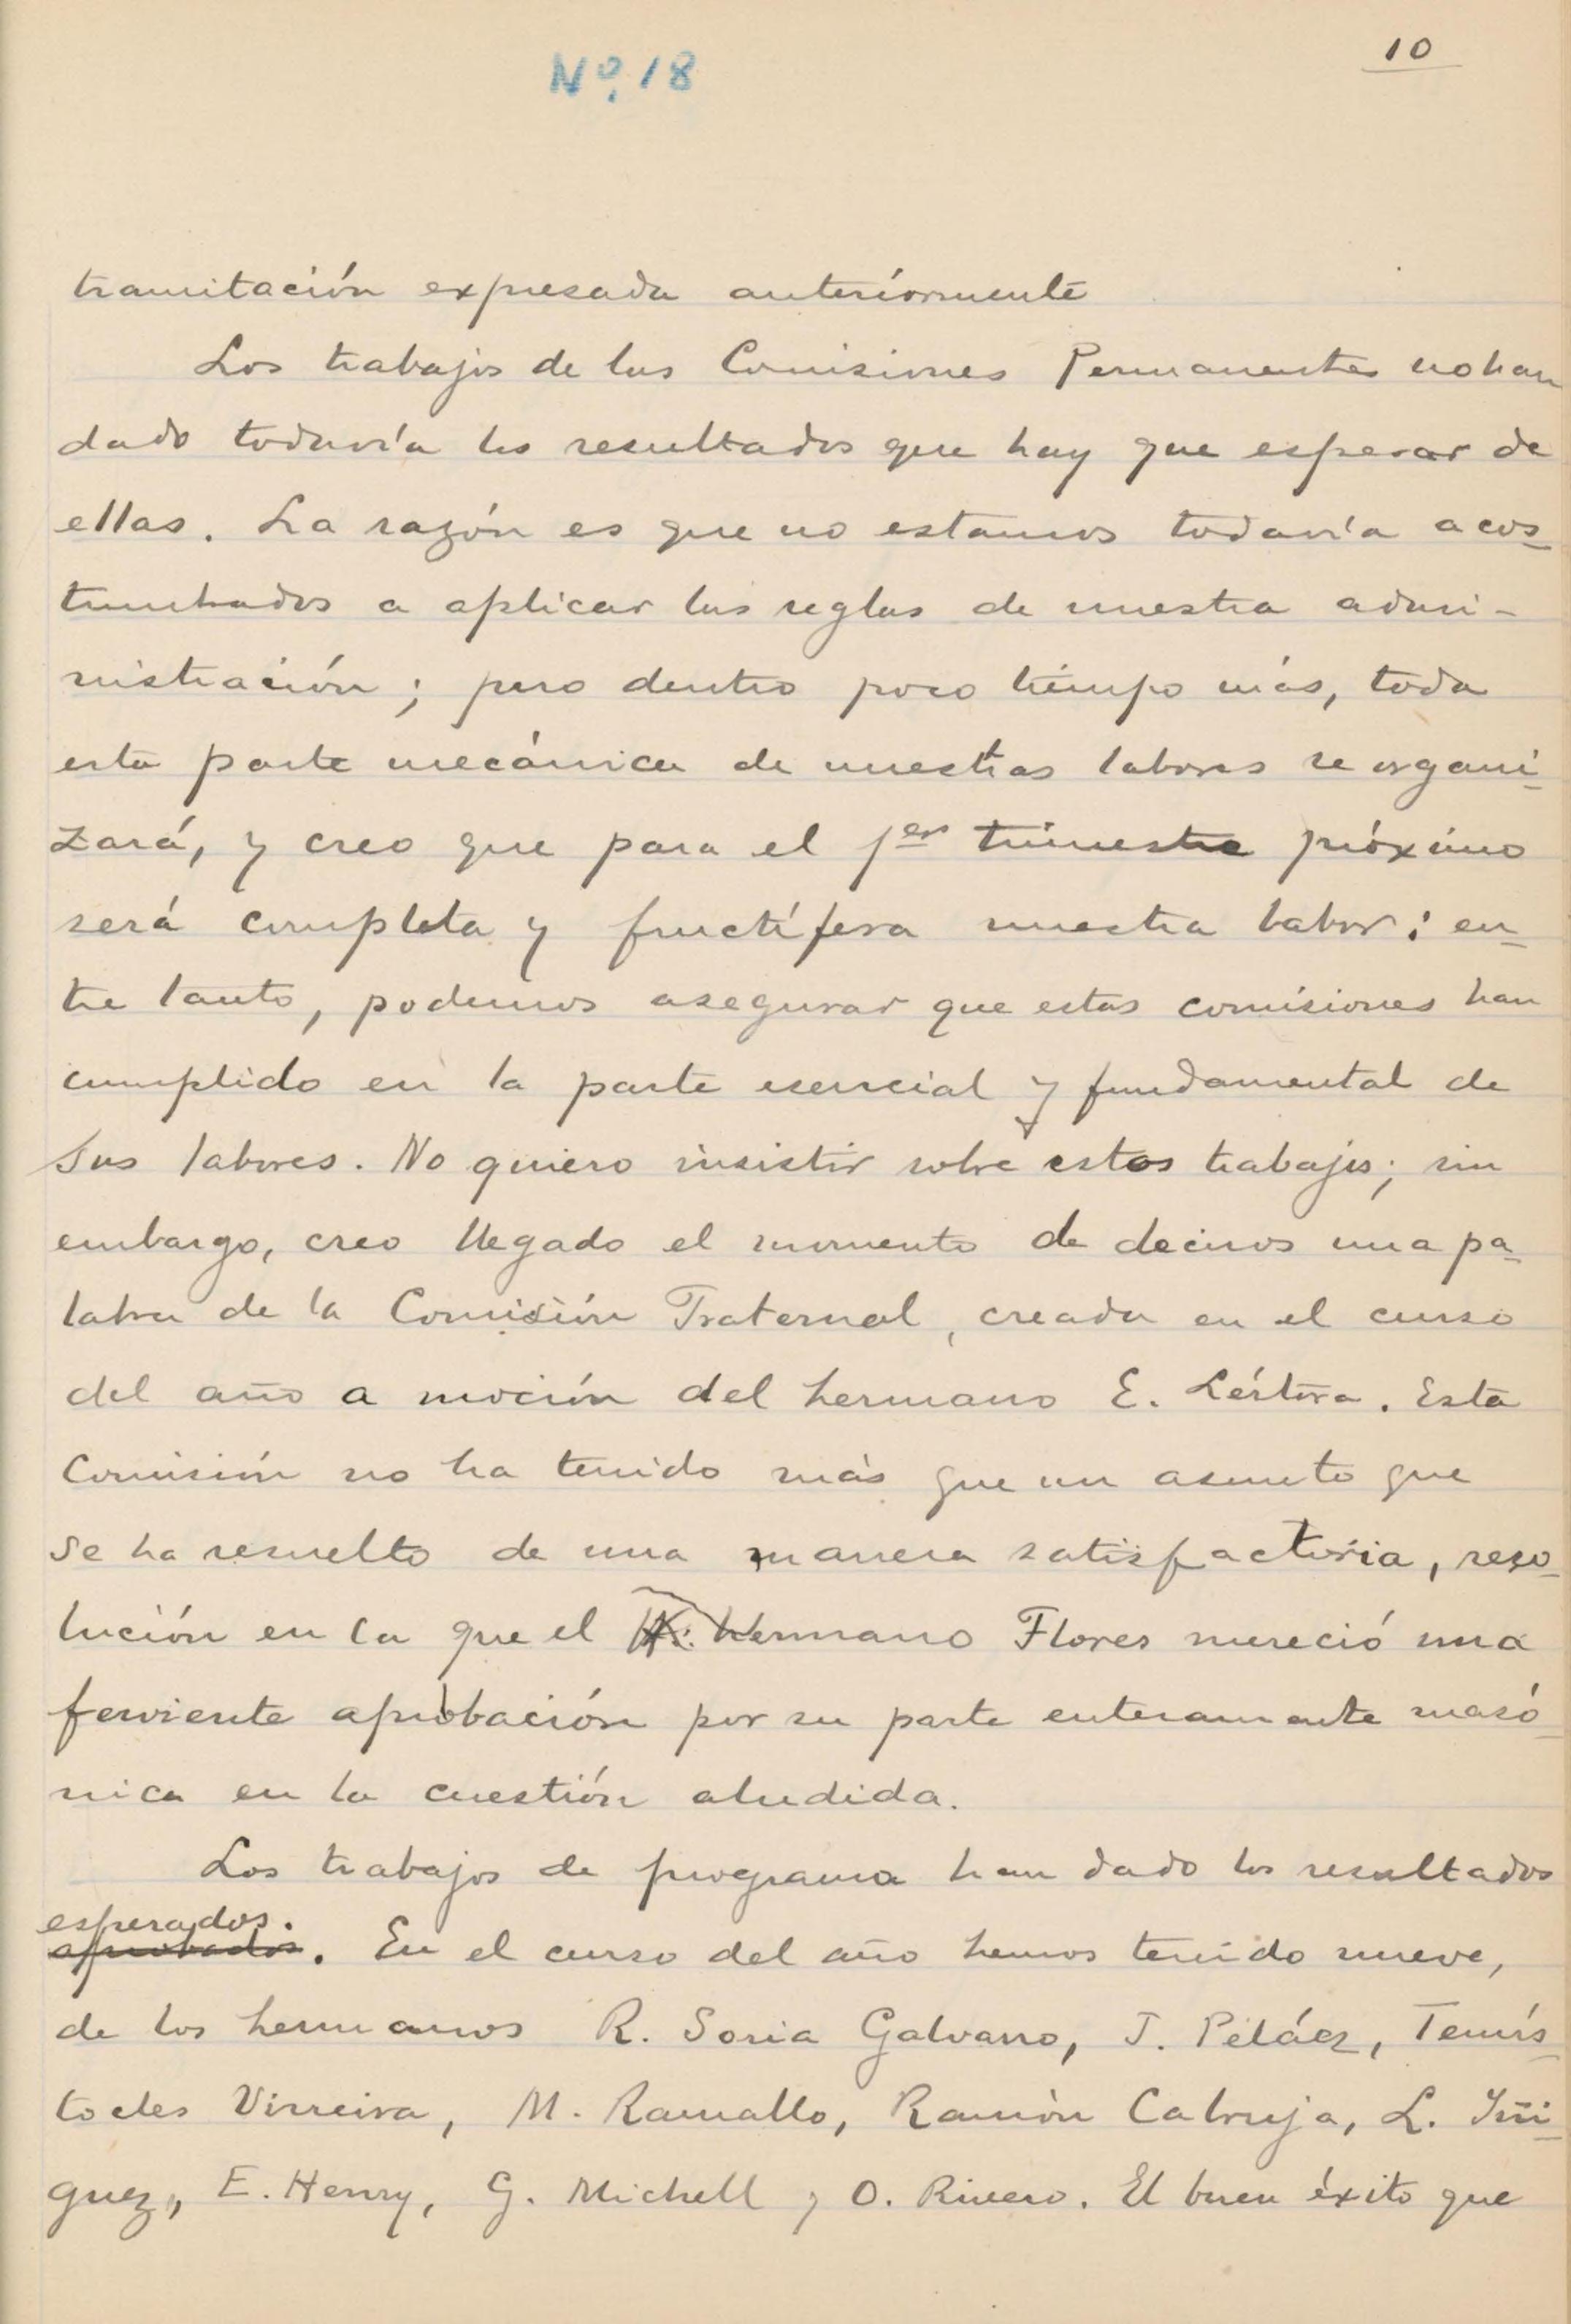 Nº. 18
10
tramitación expresada anteriormente
Los trabajos de las Comisiones Permanentes no han
dado todavía los resultados que hay que esperar de
ellas. La razón es que no estamos todavía acos-
tumbrados a aplicar las reglas de nuestra admi-
nistración; pero dentro poco tiempo más, toda
esta parte mecánica de nuestras labores se organi-
zará, y creo que para el 1er trimestre próximo
será completa y fructífera nuestra labor: en-
tre tanto, podemos asegurar que estas comisiones han
cumplido en la parte esencial y fundamental de
sus labores. No quiero insistir sobre estos trabajos; sin
embargo, creo llegado el momento de deciros una pa-
labra de la Comisión Fraternal, creada en el curso
del año a moción del hermano E. Léstora. Esta
Comisión no ha tenido más que un asunto que
se ha resuelto de una manera satisfactoria, reso-
lución en la que el H∴ hermano Flores mereció una
ferviente aprobación por su parte enteramente masó-
nica en la cuestión aludida.
Los trabajos de programa han dado los resultados
esperados.
aprobados. En el curso del año hemos tenido nueve,
de los hermanos R. Soria Galvarro, J. Peláez, Temís-
tocles Virreira, M. Ramallo, Ramón Cabruja, L. Iñi-
guez, E. Henry, G. Michell y O. Rivero. El buen éxito que